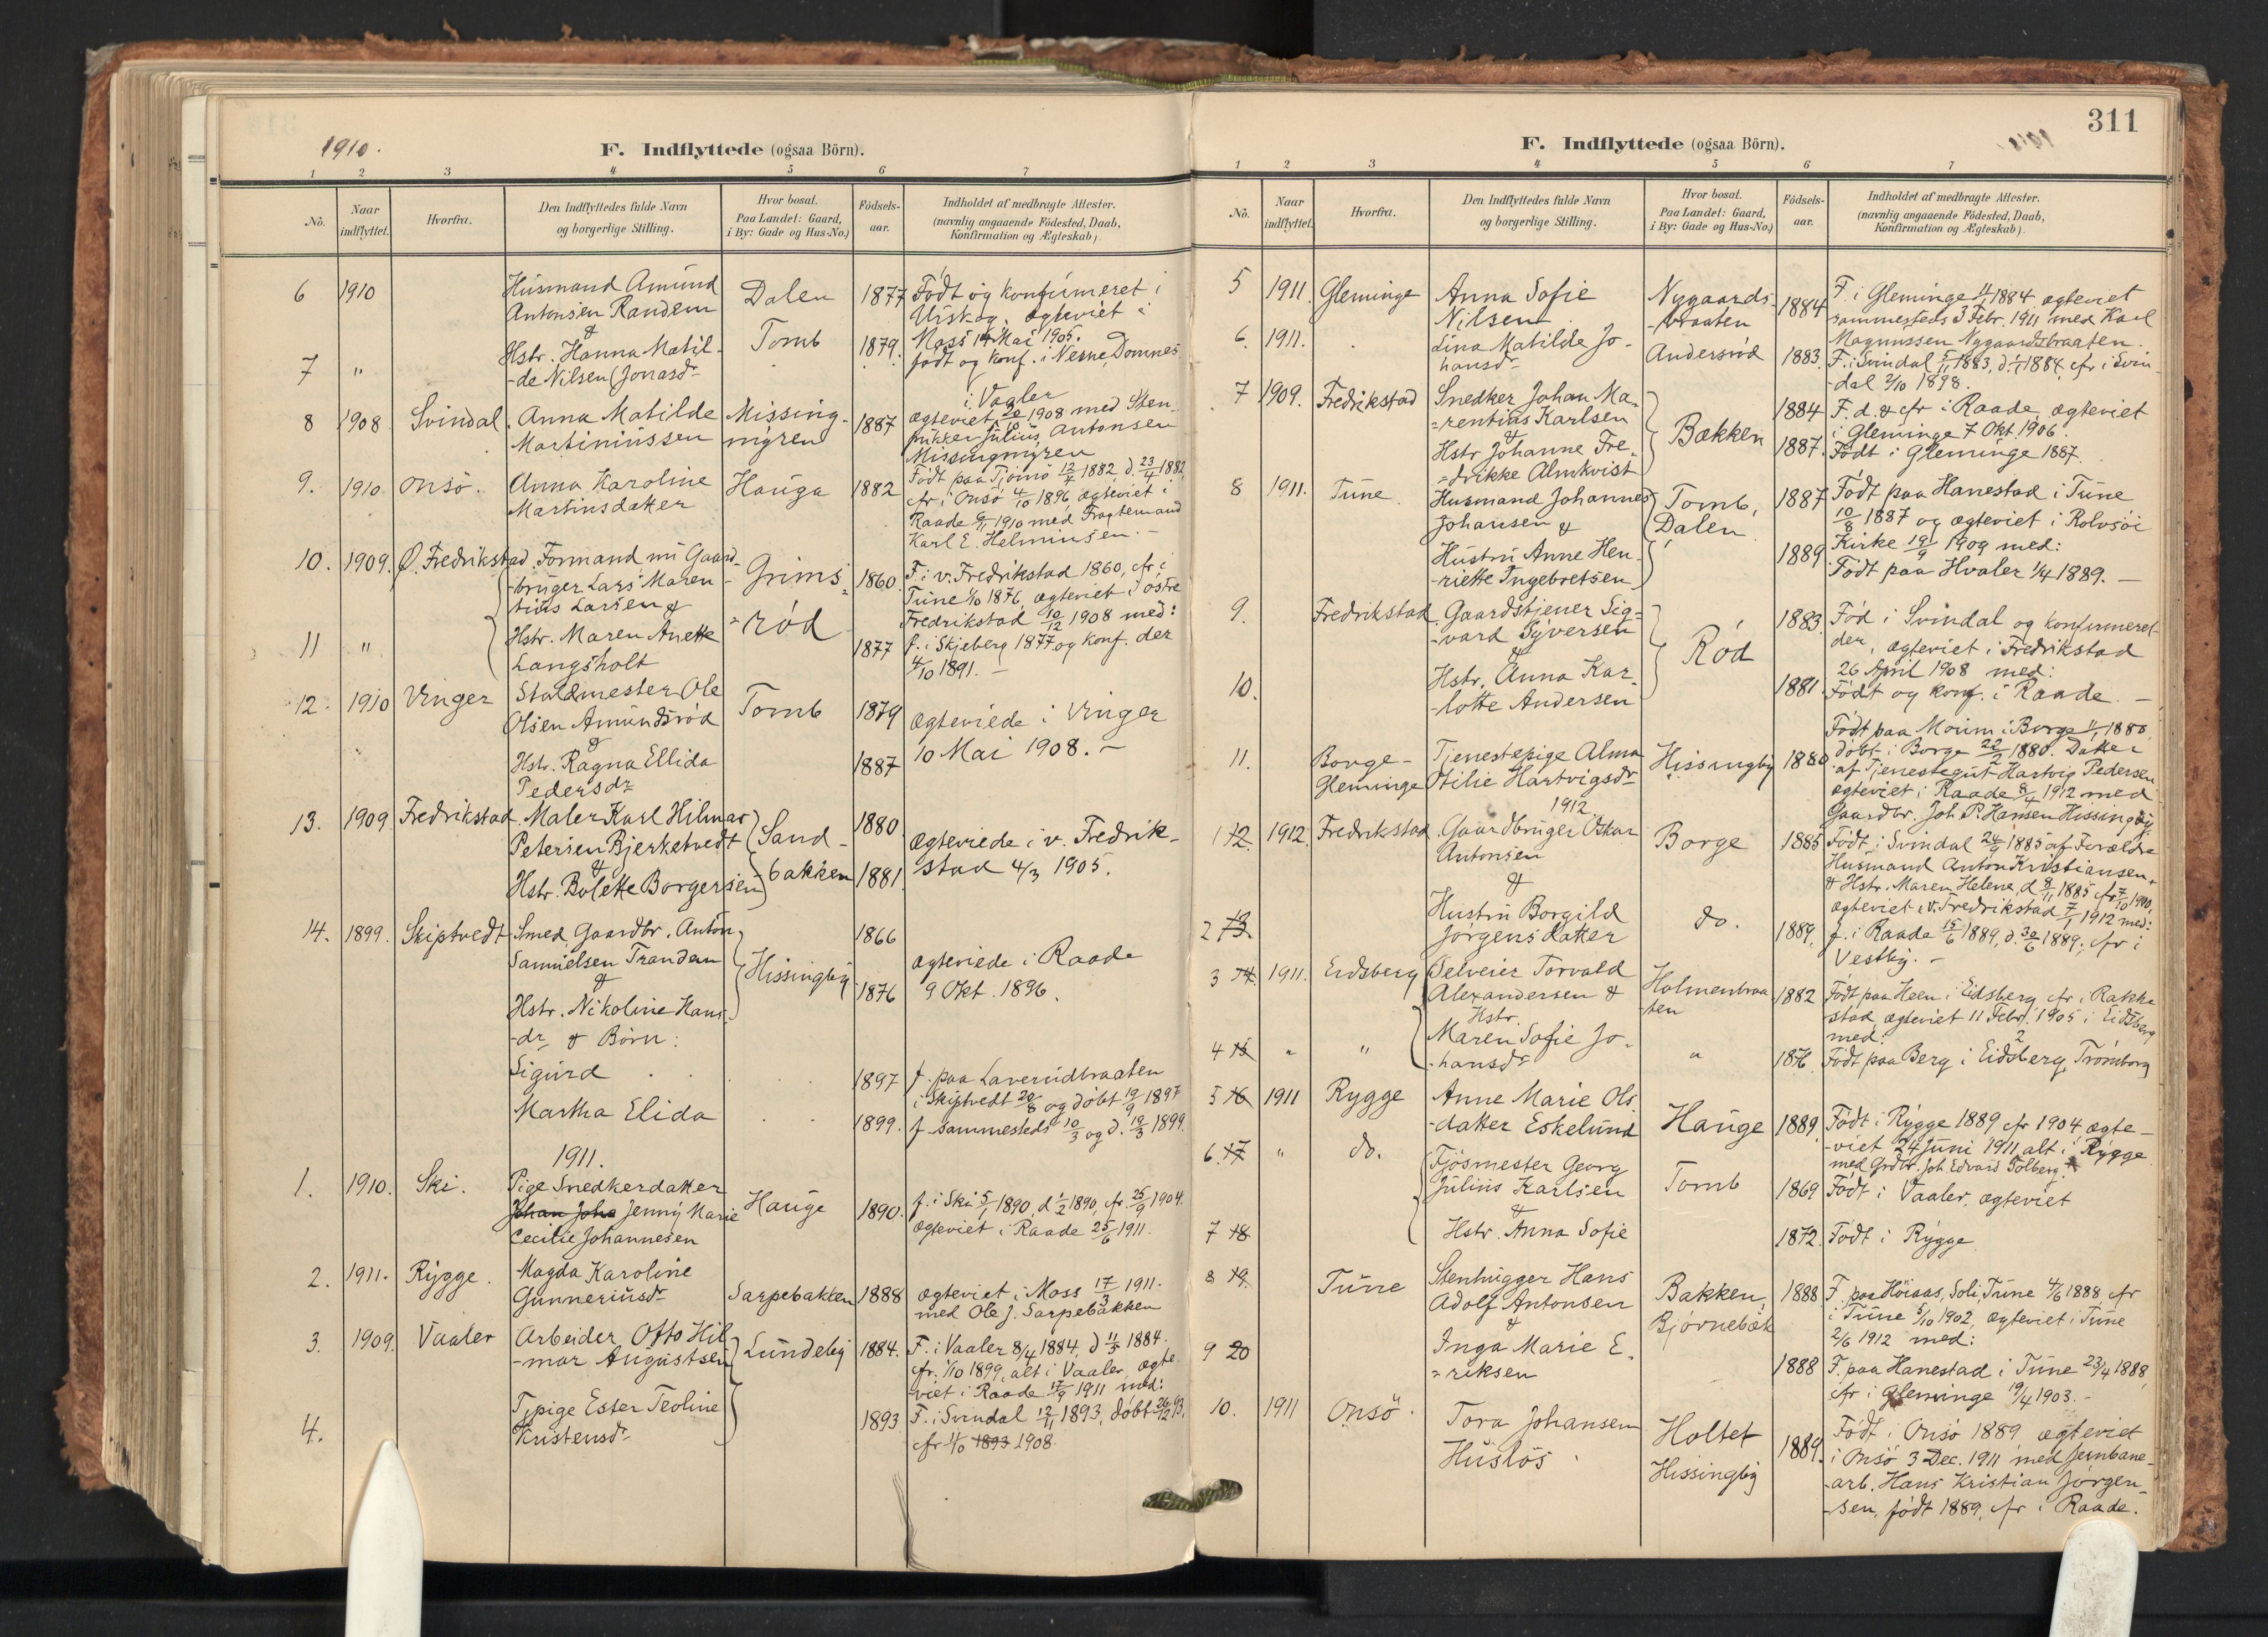 1910.
F. Indflyttede (ogsaa Börn).
1 2 3 4 5 6 7
No. Naar indflyttet. Hvorfra. Den Indflyttedes fulde Navn og borgerlige Stilling. Hvor bosat. Paa Landet: Gaard, i By: Gade og Hus-No.) Födsels-aar. Indholdet af medbragte Attester. (navnlig angaaende Födested, Daab, Konfirmation og Ægteskab).
6 1910 Husmand Amund Dalen 1877 Födt og konfirmeret i
Antonsen Randem Urskog, ægteviet i
& Moss 14 Mai 1905.
Hstr. Hanna Matil- Tomb 1879. födt og konf. i Nesne, Domnes
7 " -de Nilsen (Jonasdr
i Vaaler
8 1908 Svindal. Anna Matilde Missing- 1887 ægteviet 30/10 1908 med Sten-
Martiniussen myren hukker Julius Antonsen
Missingmyren
9. 1910 Onsö. Anna Karoline Hauga 1882 Födt paa Tjömö 12/4 1882, d. 23/4 1882
Martinsdatter cfr i Onsö 4/10 1896, ægteviet i
Raade 6/11 1910 med Fragtemand
Karl E. Helminsen. -
10. 1909. Ø. Fredrikstad. Formand nu Gaard- Grims- 1860. F. i v. Fredrikstad 1860, cfr. i
-bruger Lars Maren- Tune 1/10 1876, ægteviet i östre
tius Larsen & Fredrikstad 10/12 1908 med:
11 " Hstr. Maren Anette -röd 1877 f. i Skjeberg 1877 og konf. der
Langsholt 4/10 1891. -
12. 1910 Vinger Staldmester Ole Tomb 1879 ægteviede i Vinger
Olsen Amundsröd
& 10 Mai 1908. -
Hstr. Ragna Ellida 1887
Pedersdr
13. 1909 Fredrikstad. Maler Karl Hilmar Sand- 1880 ægteviede i v. Fredrik-
Petersen Bjerketvedt
& bakken stad 4/3 1905.
Hstr. Bolette Borgersen 1881
14. 1899. Skiptvedt Smed, Gaardbr. Anton 1866
Samuelsen Trandem Hissingby ægteviede i Raade
& 1876 9 Okt. 1896.
Hstr. Nikoline Hans-
-dr & Börn:
Sigurd 1897 f. paa Laverudbraaten
i Skiptvedt 20/8 og döbt 19/9 1897
Martha Elida 1899. f. sammesteds 10/3 og d. 19/3 1899.
1911.
1. 1910. Ski. Pige Snedkerdatter Hauge 1890. f. i Ski 5/1 1890, d 1/2 1890, cfr. 25/9 1904.
Johan Joha Jenny Marie ægteviet i Raade 25/6 1911.
Cecilie Johannesen
2. 1911. Rygge. Magda Karoline
Gunneriusdr Sarpebakken 1888 ægteviet i Moss 17/3 1911.
med Ole J. Sarpebakken
3. 1909. Vaaler Arbeider Otto Hil- Lundeby 1884. F. i Vaaler 8/4 1884, d 11/5 1884.
-mar Augustsen cfr. 1/10 1899, alt i Vaaler, ægte-
-viet i Raade 17/9 1911 med:
4. Tjpige Ester Teoline 1893 F. i Svindal 12/11 1893, döbt 26/12 93.
Kristensdr cfr 1/10 1893 1908.
311
F. Indflyttede (ogsaa Börn).
1 2 3 4 5 6 7
No. Naar indflyttet. Hvorfra. Den Indflyttedes fulde Navn og borgerlige Stilling. Hvor bosat. Paa Landet: Gaard, i By: Gade og Hus-No.) Födsels-aar. Indholdet af medbragte Attester. (navnlig angaaende Födested, Daab, Konfirmation og Ægteskab).
5 1911. Gleminge Anna Sofie Nygaards- 1884 F. i Gleminge 1884 ægteviet
Nilsen -braaten sammesteds 3 Febr. 1911 med Karl
Magnussen Nygaardsbraaten.
6. 1911. Lina Matilde Jo- Andersröd 1883. F. i Svindal 5/11 1883, d. 1/1 1884, cfr i Svin-
hansdr -dal 2/10 1898.
7 1909. Fredrikstad Snedker Johan Ma- 1884 F. d. & cfr i Raade, ægteviet
-rentius Karlsen i Gleminge 7 Okt 1906.
& Bakken
Hstr Johanne Fre- 1887. Födt i Gleminge 1887.
-drikke Almkvist
8 1911. Tune. Husmand Johannes Tomb, 1887 Födt paa Hanestad i Tune
Johansen & Dalen. 10/8 1887 og ægteviet i Rolvsöi
Kirke 19/9 1909 med:
Hustru Anne Hen- 1889 Födt paa Hvaler 1/4 1889. -
-riette Ingebretsen
9. Fredrikstad. Gaardstjener Sig- 1883. Föd i Svindal og konfirmeret
-vard Syversen der, ægteviet i Fredrikstad
& Röd 26 April 1908 med:
10. Hstr. Anna Kar- 1881 Födt og konf. i Raade. -
-lotte Andersen
Födt paa Moum i Borge 1880
11. Borge- Tjenestepige Alma Hissingby 1880 döbt i Borge 22/2 1880. Datter
Gleminge Otilie Hartvigsdr af Tjenestegut Hartvig Pedersen
ægteviet i Raade 8/4 1912 med
Gaardbr. Joh. P. Hansen Hissingby.
1912.
1 12. 1912. Fredrikstad. Gaardbruger Oskar Borge 1885 Födt i Svindal 24/9 1885 af Forældre
Antonsen Husmand Anton Kristiansen
& & Hstr. Maren Helene, d 8/11 1885 cfr 7/10 1900,
ægteviet i v. Fredrikstad 7/1 1912 med:
2 13. Hustru Borgild do. 1889. f. i Raade 15/6 1889, d. 30/6 1889, cfr i
Jörgensdatter Vestby. -
3 14. 1911. Eidsberg Selveier Torvald Holmenbraa- 1882 Födt paa Heen i Eidsberg cfr. i Rakke-
Alexandersen & -ten -stad ægteviet 11 Febr. 1905 i Eidsberg
Hstr. med:
4 15 " " Maren Sofie Jo- " 1876 Födt paa Berg i Eidsberg, Trömborg
-hansdr
5 16 1911 Rygge Anne Marie Ols- Hauge 1889. Födt i Rygge 1889 cfr 1904 ægte-
-datter Eskelund -viet 24 Juni 1911, alt i Rygge
med Grdbr. Joh. Edvard Solberg.
6. 17 " do. Fjösmester Georg Tomb 1869 Födt i Vaaler, ægteviet
Julius Karlsen
&
7 18 Hstr. Anna Sofie 1872. Födt i Rygge
8 19. Tune Stenhugger Hans Bakken, 1888 F. paa Höiaas, Soli, Tune 4/6 1888 cfr
Adolf Antonsen Björnebæk i Tune 5/10 1902, ægteviet i Tune
& 2/6 1912 med:
9 20 Inga Marie E- 1888 F. paa Hanestad i Tune 23/4 1888,
-riksen cfr i Gleminge 19/4 1903. -
10. 1911 Onsö. Tora Johansen Holtet 1889. Födt i Onsö 1889 ægteviet
Huslös Hissingby i Onsö 3 Dec. 1911 med Jernbane-
-arb. Hans Kristian Jörgen-
-sen, födt 1889, cfr i Raade.